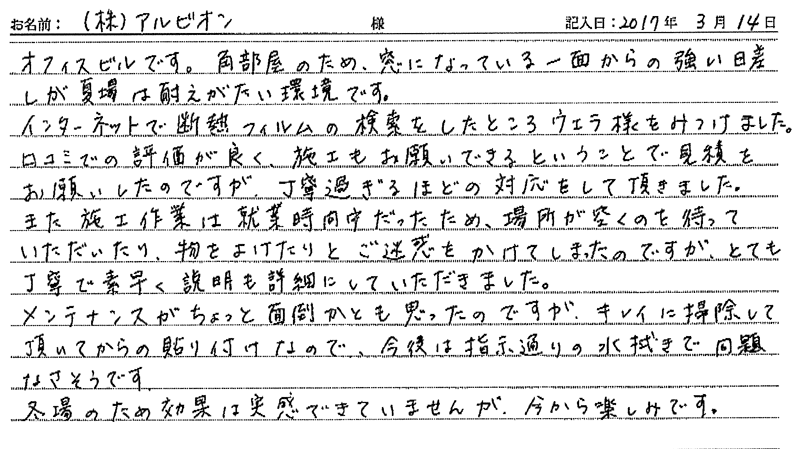 お名前： （株）アルビオン 様 記入日：2017年 3月 14日
オフィスビルです。角部屋のため、窓になっている一面からの強い日差
しが夏場は耐えがたい環境です。
インターネットで断熱フィルムの検索をしたところウェラ様をみつけました。
口コミでの評価が良く、施工もお願いできるということで見積を
お願いしたのですが、丁寧過ぎるほどの対応をして頂きました。
また施工作業は就業時間中だったため、場所が空くのを待って
いただいたり、物をよけたりとご迷惑をかけてしまったのですが、とても
丁寧で素早く説明も詳細にしていただきました。
メンテナンスがちょっと面倒かとも思ったのですが、キレイに掃除して
頂いてからの貼り付けなので、今後は指示通りの水拭きで問題
なさそうです
冬場のため効果は実感できていませんが、今から楽しみです。